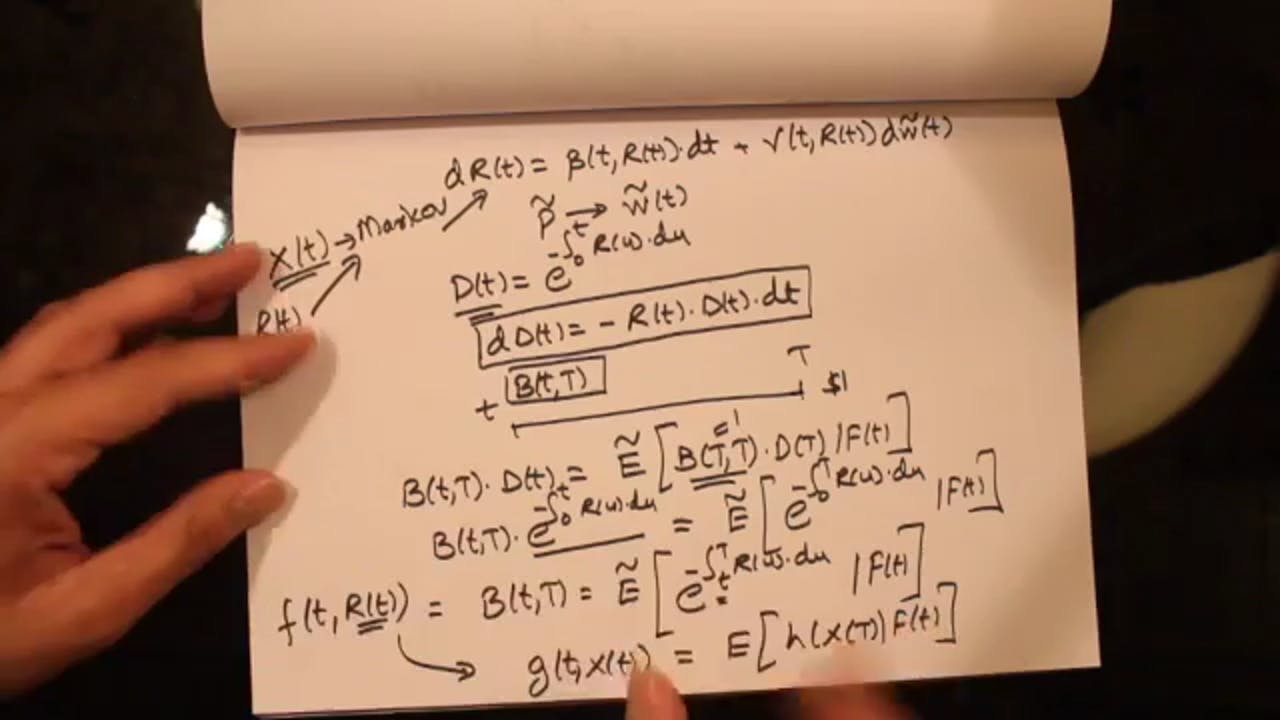 dR(t) = β(t, R(t))·dt + γ(t, R(t)) dW̃(t)
X(t) → Markov
P̃ → W̃(t)
R(t)
D(t) = e^{-∫_0^t R(u)·du}
dD(t) = - R(t)·D(t)·dt
t B(t,T) T $1
B(t,T)·D(t) = Ẽ[B(T,T)·D(T) | F(t)]
=1
B(t,T)·e^{-∫_0^t R(u)·du} = Ẽ[e^{-∫_0^T R(u)·du} | F(t)]
f(t, R(t)) = B(t,T) = Ẽ[e^{-∫_t^T R(u)·du} | F(t)]
g(t, X(t)) = E[h(X(T)) | F(t)]